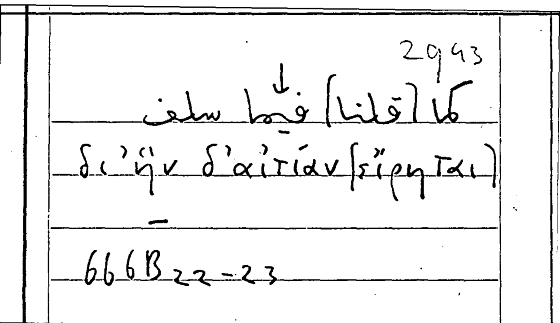 2943
كما [قلنا] فيما سلف
δι' ἣν δ' αἰτίαν [εἴρηται]
666B22-23